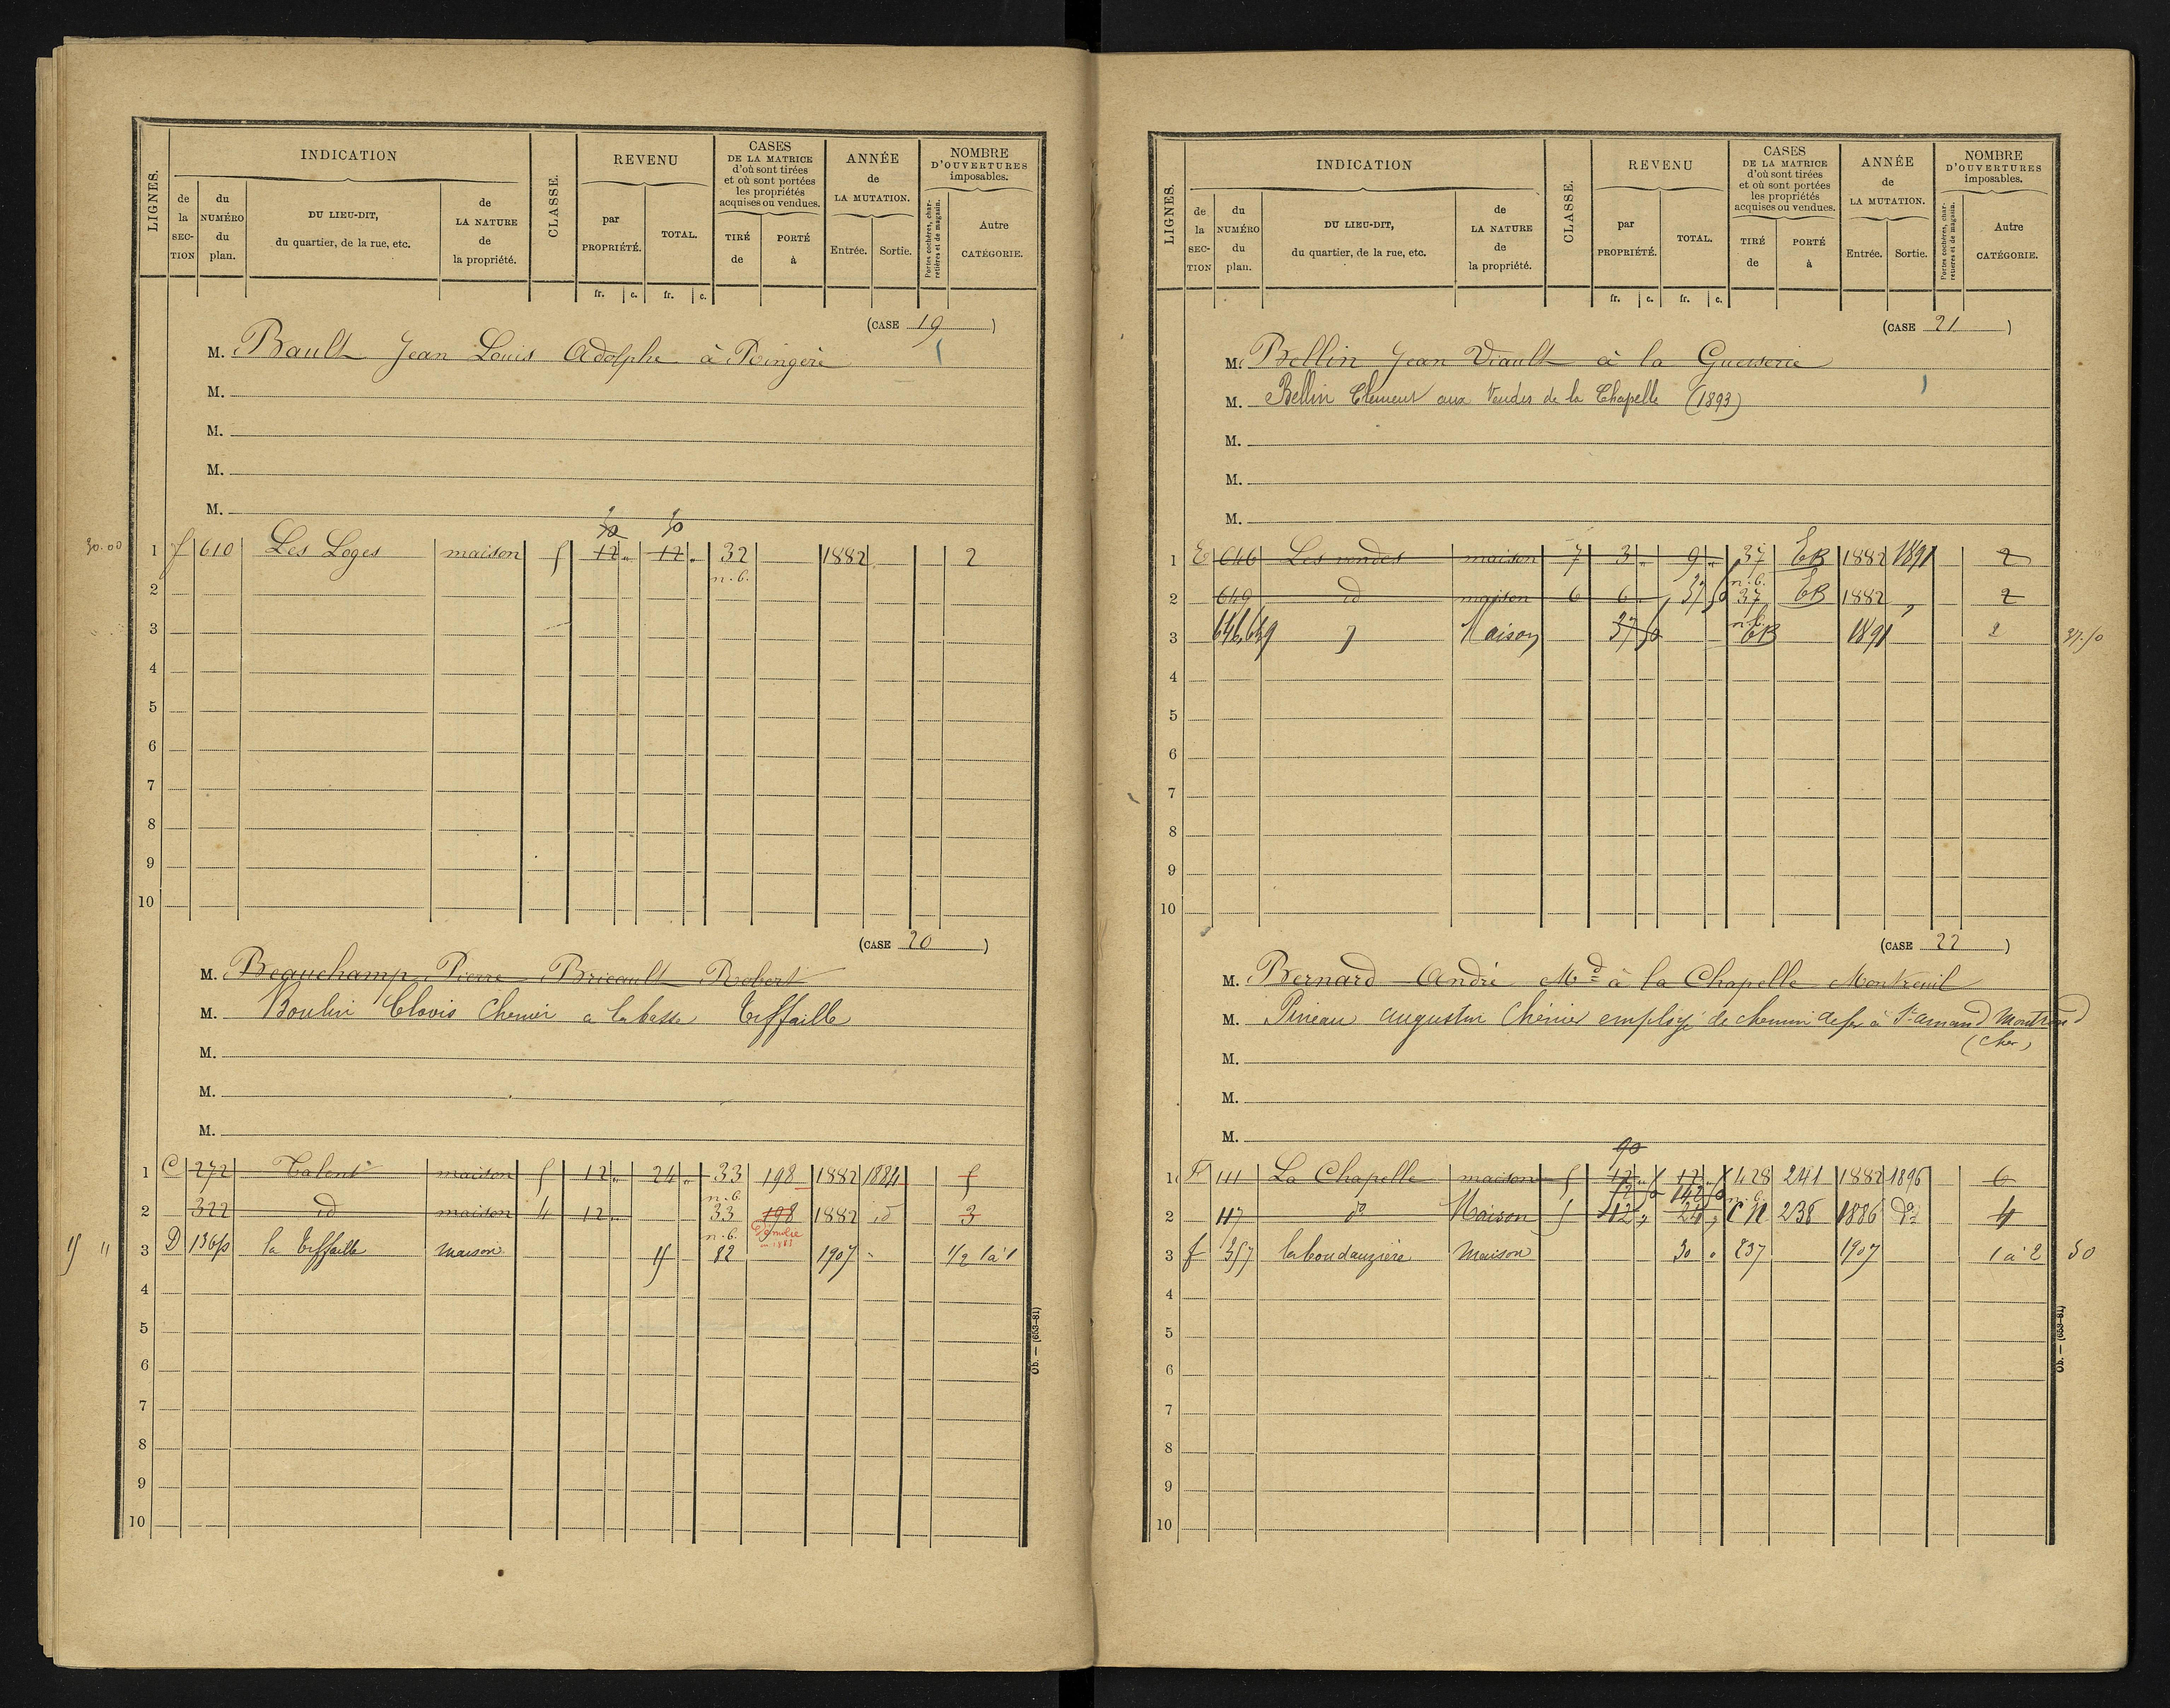 LIGNES.
INDICATION
de la SECTION
du NUMÉRO du plan.
DU LIEU-DIT, du quartier, de la rue, etc.
de LA NATURE de la propriété.
CLASSE.
REVENU
par PROPRIÉTÉ.
TOTAL.
CASES DE LA MATRICE d'où sont tirées et où sont portées les propriétés acquises ou vendues.
TIRÉ de
PORTÉ à
ANNÉE de LA MUTATION.
Entrée.
Sortie.
NOMBRE D'OUVERTURES imposables.
Portes cochères, charretières et de magasin.
Autre CATÉGORIE.
fr. c. fr. c.
(CASE 19)
M. Bault Jean Louis Adolphe à
M.
M.
M.
M.
30.00 1 f 610 Les Loges maison 5 12 „ 12 „ 32 1882 2
n.b.
2
3
4
5
6
7
8
9
10
(CASE 20)
M. Beauchamp Pierre Bricault Robert
M. Boulin Clovis Chenier a la basse Tiffaille
M.
M.
M.
1 C 272 Talent maison 5 12 „ 24 „ 33 198 1882 1884 5
n.b.
2 322 id maison 4 12 „ 33 198 1882 id 3
n.b.
3 D 136p la Tiffaille maison 15 82 1907 1/2 1 à 1
15 "
4
5
6
7
8
9
10
Ob. — (653-81)
LIGNES.
INDICATION
de la SECTION
du NUMÉRO du plan.
DU LIEU-DIT, du quartier, de la rue, etc.
de LA NATURE de la propriété.
CLASSE.
REVENU
par PROPRIÉTÉ.
TOTAL.
CASES DE LA MATRICE d'où sont tirées et où sont portées les propriétés acquises ou vendues.
TIRÉ de
PORTÉ à
ANNÉE de LA MUTATION.
Entrée.
Sortie.
NOMBRE D'OUVERTURES imposables.
Portes cochères, charretières et de magasin.
Autre CATÉGORIE.
fr. c. fr. c.
(CASE 21)
M. Bellin Jean Viault à la
M. Bellin Clement aux Vendes de la Chapelle (1893)
M.
M.
M.
1 E 646 Les vendes maison 7 3 „ 9 „ 37 EB 1882 1891 2
n.b.
2 649 id maison 6 6 „ 37 50 37 EB 1882 „ 2
n.b.
3 646,649 Maison 37 50 EB 1891 2 37.50
4
5
6
7
8
9
10
(CASE 22)
M. Bernard André Md à la Chapelle Montreuil
M. Pineau augustin Chénier employé de chemin de fer à St amand Montrond
(Cher)
M.
M.
M.
90
1 F 111 La Chapelle maison 5 12 „ 12 „ 428 241 1882 1896 6
52 50 142 50 n.b.
2 117 do Maison 5 12 „ 24 „ C N 238 1886 do 4
3 f 357 maison 30 „ 237 1907 1 à 2 30
4
5
6
7
8
9
10
Ob. — (653-81)